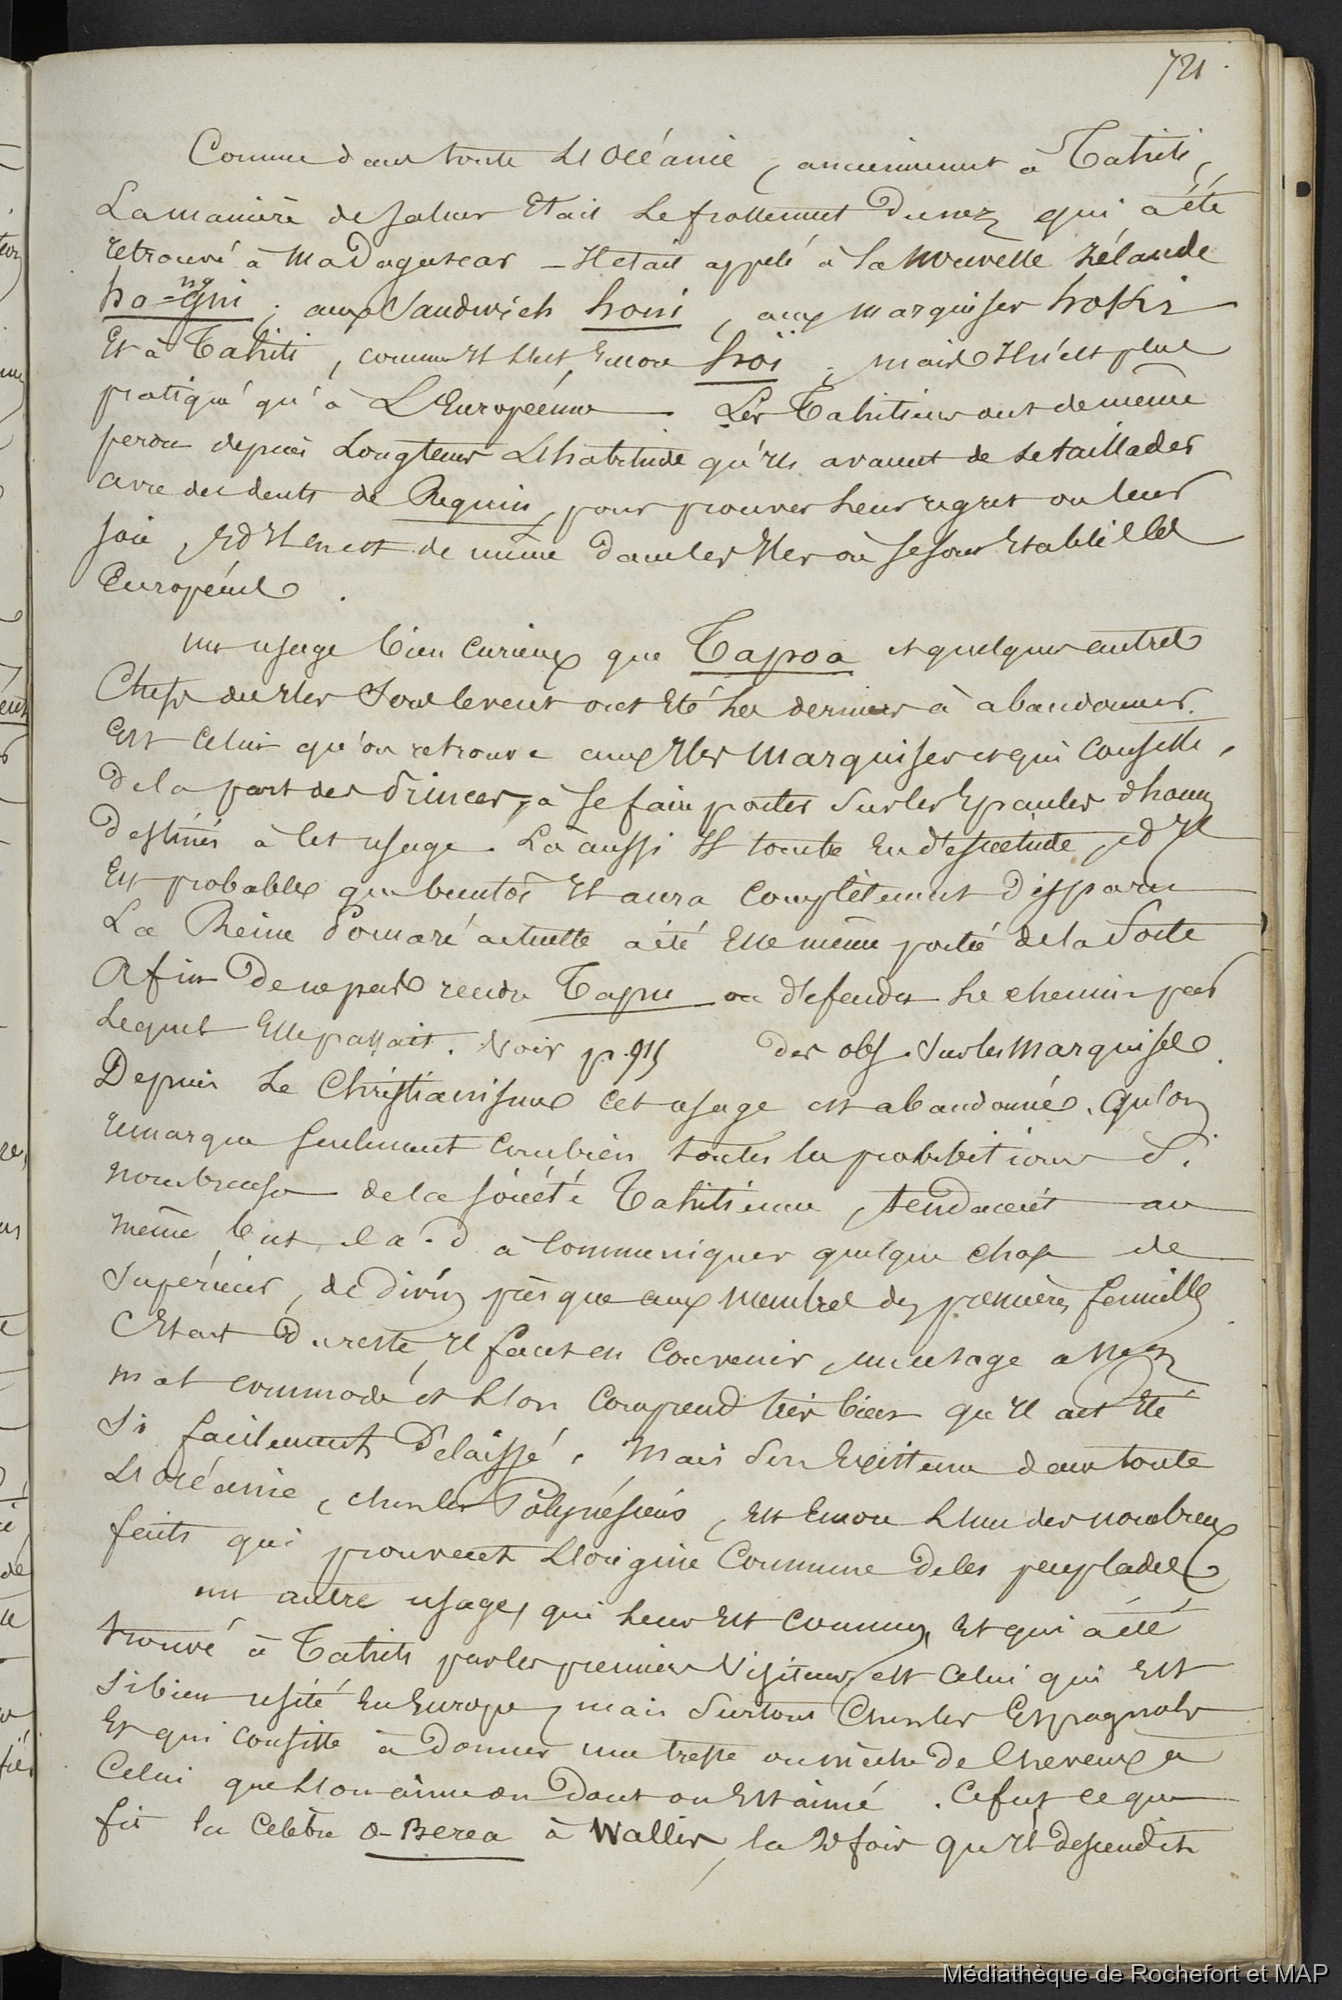 721.
Comme dans toute L'Océanie, anciennement à Tahiti,
La manière de saluer Etait Le frottement du nez, qui a été
retrouvé à Madagascar – Il était appelé à la Nouvelle Zélande
ho-gni ng ; aux Sandwich honi, aux Marquises hoki
Et à Tahiti, comme Il l'est Encore hoï ; mais Il n'est plus
pratiqué qu'à L'Européenne. Les Tahitiens ont de même
perdu depuis Longtems L'habitude qu'ils avaient de se taillader
avec des dents de Requin, pour prouver Leur regret ou leur
joie, Et Il en est de même dans les Iles où se sont Etablis les
Européens.
un usage bien curieux que Tapoa et quelques autres
Chefs des Iles Sous le vent ont Eté Les derniers à abandonner,
Est Celui qu'on retrouve aux Iles Marquises et qui Consiste,
de la part des Princes, à se faire porter Sur les Epaules d'homs
Destinés à cet usage. Là aussi Il tombe En désuétude, et Il
Est probable que bientôt Il aura Complètement disparu
La Reine Pomaré actuelle a été Elle même portée de la Sorte
Afin De ne pas rendre Tapu ou défendu Le chemin par
Lequel Elle passait. Voir p. 915 des obs. Sur les Marquises.
Depuis Le Christianisme Cet usage est abandonné. Qu'on
remarque seulement Combien toutes les prohibitions Si
nombreuses de la société Tahitienne, tendaient au
même but c.a.d à Communiquer quelque chose de
Supérieur, de divin presque aux Membres des premières familles
C'était Du reste, Il faut en Convenir, un usage assez
mal commode et L'on Comprend très bien qu'Il ait Eté
Si facilement Délaissé. Mais Son Existence dans toute
L'océanie, chez les Polynésiens, Est Encore L'un des nombreux
faits qui prouvent L'origine Commune de ces peuplades
un autre usage, qui Leur Est Commun, Et qui a été
trouvé à Tahiti par les premiers Visiteurs, est Celui qui Est
Si bien usité En Europe, mais Surtout Chez les Espagnols
Et qui Consiste à donner une tresse ou mèche de Cheveux à
Celui que L'on aime ou Dont on Est aimé. Ce fut ce que
fit la Celèbre O-Berea à Wallis, la 2e fois qu'Il descendit
Médiathèque de Rochefort et MAP